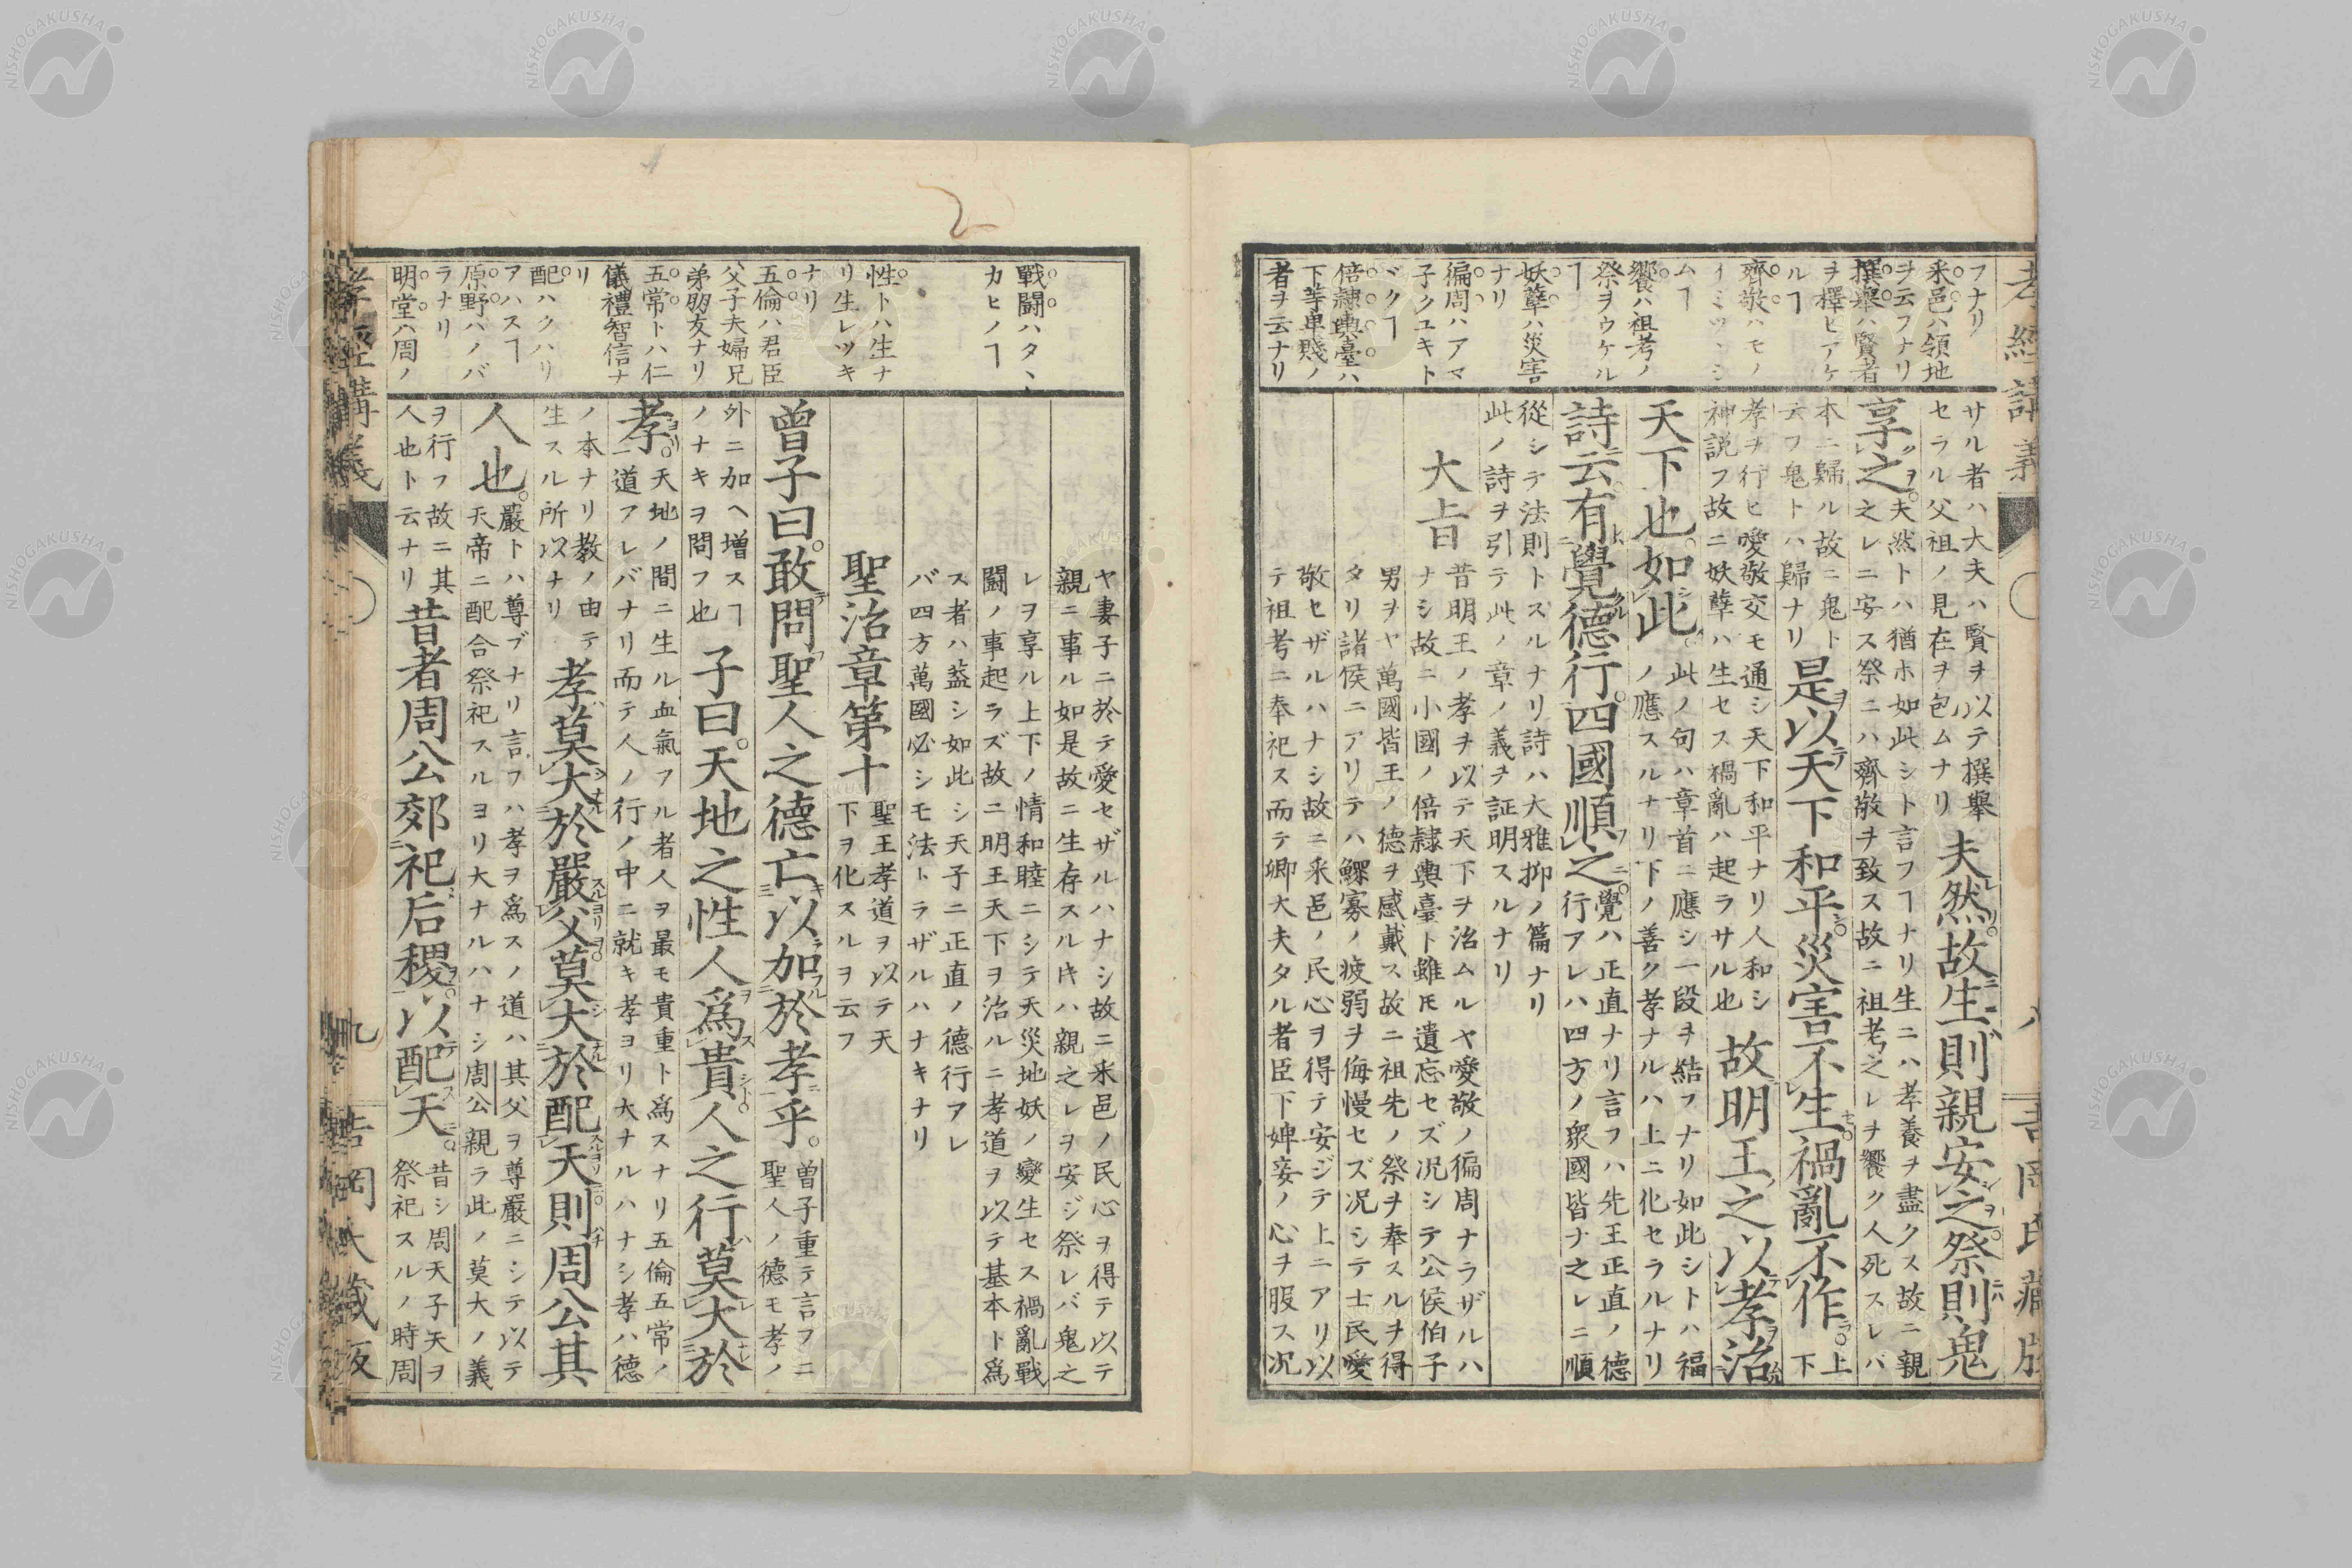 孝經講義
八
吉岡氏藏版
フナリ
釆邑ハ領地
ヲ云フナリ
撰擧ハ賢者
ヲ擇ヒアケ
ルヿ
齊敬ハモノ
イミツヽシ
ムヿ
饗ハ祖考ノ
祭ヲウケル
ヿ
妖孽ハ災害
ナリ
徧周ハアマ
子クユキト
ヾクヿ
倍隷輿臺ハ
下等卑賤ノ
者ヲ云ナリ
サル者ハ大夫ハ賢ヲ以テ撰擧
セラル父祖ノ見在ヲ包ムナリ
夫然故生則親安之祭則鬼
享之
夫然トハ猶ホ如此シト言フヿナリ生ニハ孝養ヲ盡クス故ニ親
之レニ安ス祭ニハ齊敬ヲ致ス故ニ祖考之レヲ饗ク人死スレバ
本ニ歸ル故ニ鬼ト
云フ鬼トハ歸ナリ
是以天下和平災害不生禍亂不作
上
下
孝ヲ行ヒ愛敬交モ通シ天下和平ナリ人和シ
神説フ故ニ妖孽ハ生セス禍亂ハ起ラサル也
故明王之以孝治
天下也如此
此ノ句ハ章首ニ應シ一段ヲ結フナリ如此シトハ福
ノ應スルナリ下ノ善ク孝ナルハ上ニ化セラルナリ
詩云有覺德行四國順之
覺ハ正直ナリ言フハ先王正直ノ德
行アレハ四方ノ衆國皆ナ之レニ順
從シテ法則トスルナリ詩ハ大雅抑ノ篇ナリ
此ノ詩ヲ引テ此ノ章ノ義ヲ証明スルナリ
大旨
昔明王ノ孝ヲ以テ天下ヲ治ムルヤ愛敬ノ徧周ナラザルハ
ナシ故ニ小國ノ倍隷輿臺ト雖𪜈遺忘セズ况シテ公侯伯子
男ヲヤ萬國皆王ノ德ヲ感戴ス故ニ祖先ノ祭ヲ奉スルヲ得
タリ諸侯ニアリテハ鰥寡ノ疲弱ヲ侮慢セズ况シテ士民愛
敬セザルハナシ故ニ釆邑ノ民心ヲ得テ安ジテ上ニアリ以
テ祖考ニ奉祀ス而テ卿大夫タル者臣下婢妾ノ心ヲ服ス况
戰鬪ハタヽ
カヒノヿ
性トハ生ナ
リ生レツキ
ナリ
五倫ハ君臣
父子夫婦兄
弟朋友ナリ
五常トハ仁
儀禮智信ナ
リ
配ハクハリ
アハスヿ
原野ハノバ
ラナリ
明堂ハ周ノ
ヤ妻子ニ於テ愛セザルハナシ故ニ釆邑ノ民心ヲ得テ以テ
親ニ事ル如是故ニ生存スル𪜈ハ親之レヲ安ジ祭レバ鬼之
レヲ享ル上下ノ情和睦ニシテ天災地妖ノ變生セス禍亂戰
鬪ノ事起ラズ故ニ明王天下ヲ治ルニ孝道ヲ以テ基本ト爲
ス者ハ葢シ如此シ天子ニ正直ノ德行アレ
バ四方萬國必シモ法トラザルハナキナリ
聖治章第十
聖王孝道ヲ以テ天
下ヲ化スルヲ云フ
曾子曰敢問聖人之德亡以加於孝乎
曾子重テ言フニ
聖人ノ德モ孝ノ
外ニ加ヘ增スヿ
ノナキヲ問フ也
子曰天地之性人爲貴人之行莫大於
孝
天地ノ間ニ生ル血氣フル者人ヲ最モ貴重ト爲スナリ五倫五常ノ
道フレバナリ而テ人ノ行ノ中ニ就キ孝ヨリ大ナルハナシ孝ハ德
ノ本ナリ教ノ由テ
生スル所以ナリ
孝莫大於嚴父莫大於配天則周公其
人也
嚴トハ尊ブナリ言フハ孝ヲ爲スノ道ハ其父ヲ尊嚴ニシテ以テ
天帝ニ配合祭祀スルヨリ大ナルハナシ周公親ラ此ノ莫大ノ義
ヲ行フ故ニ其
人也ト云ナリ
昔者周公郊祀后稷以配天
昔シ周天子天ヲ
祭祀スルノ時周
孝經講義
九
吉岡氏藏版
NISHOGAKUSHA